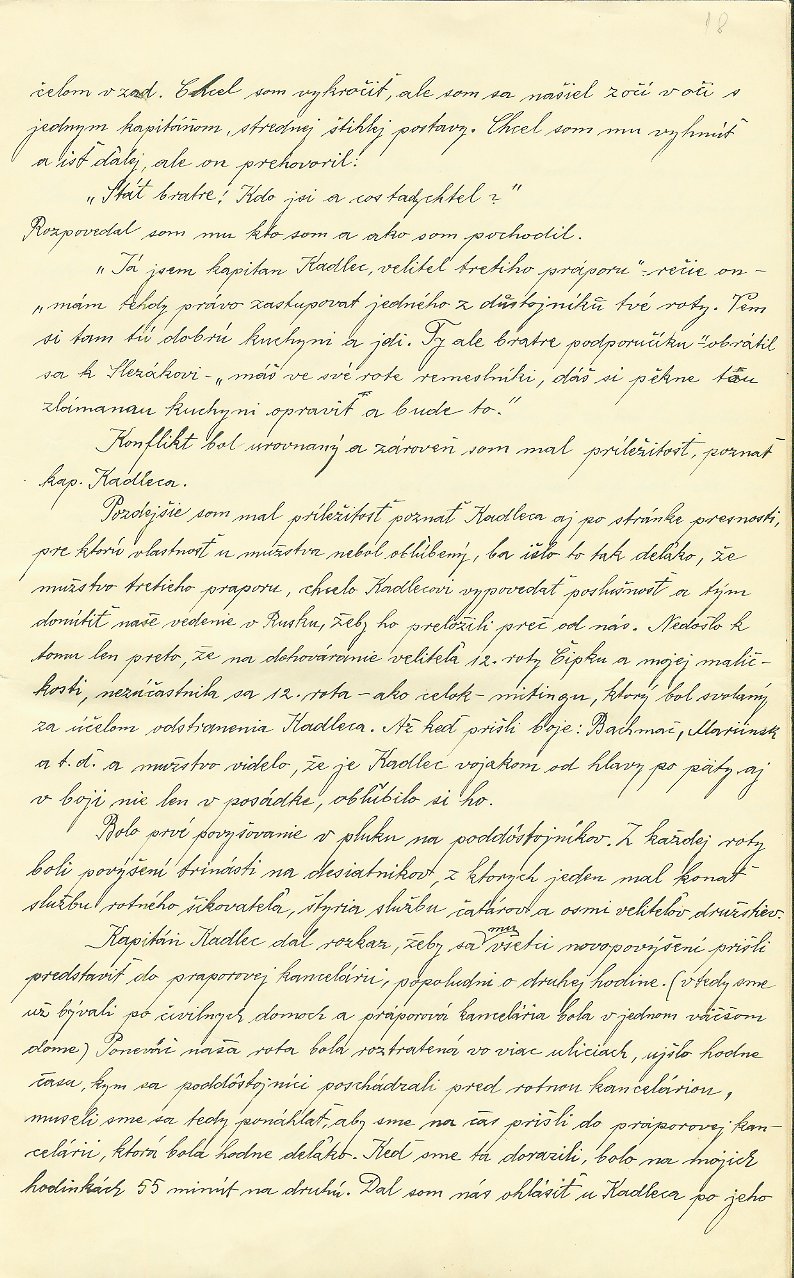 18
čelom vzad. Chcel som vykročiť, ale som sa našiel zoči v oči s
jednym kapitáňom, strednej štihlej postavy. Chcel som mu vyhnúť
a isť ďalej, ale on prehovoril:
„Stát bratre! Kdo jsi a cos tady chtel?"
Rozpovedal som mu kto som a ako som pochodil.
„Já jsem kapitan Kadlec, velitel tretiho práporu"- rečie on -
„mám tehdy právo zastupovat jedného z důstojníků tvé roty. Vem
si tam tú dobrú kuchyni a jdi. Ty ale bratre podporučíku"- obrátil
sa k Slezákovi - „máš ve své rote remeslníki, dáš si pěkne tou
zlámanau kuchyni opraviť a bude to."
Konflikt bol urovnaný a zároveň som mal príležitosť, poznať
kap. Kadleca.
Pozdejšie som mal príležitosť poznať Kadleca aj po stránke presnosti,
pre ktorú vlastnosť u mužstva nebol obľúbený, ba išlo to tak deľako, že
mužstvo tretieho praporu, chcelo Kadlecovi vypovedať poslušnosť a tým
donútiť naše vedenie v Rusku, žeby ho preložili preč od nás. Nedošlo k
tomu len preto, že na dohováranie veliteľa 12. roty Čipku a mojej malič-
kosti, nezúčastnila sa 12. rota - ako celok - mitingu, ktorý bol svolaný
za účelom odstranenia Kadleca. Až keď prišli boje: Bachmač, Mariinsk
a t. ď. a mužstvo videlo, že je Kadlec vojakom od hlavy po päty aj
v boji nie len v posádke, obľúbilo si ho.
Bolo prvé povyšovanie v pluku na poddôstojníkov. Z každej roty
boli povýšení trinásti na desiatnikov, z ktorych jeden mal konať
službu rotného šikovateľa, štyria službu čatárov a osmi veliteľov družstiev.
Kapitán Kadlec dal rozkaz, žeby sa mu všetci novopovýšení prišli
predstaviť do praporovej kancelárii, popoludni o druhej hodine. (vtedy sme
už bývali po civilných domoch a práporová kancelária bola v jednom väčšom
dome) Poneváč naša rota bola roztratená vo viac uliciach, ujšlo hodne
času, kym sa poddôstojníci poschádzali pred rotnou kanceláriou,
museli sme sa tedy ponáhlať, aby sme na čas prišli do práporovej kan-
celárii, ktorá bola hodne deľako. Keď sme tá dorazili, bolo na mojich
hodinkách 55 minút na druhú. Dal som nás ohlásiť u Kadleca po jeho